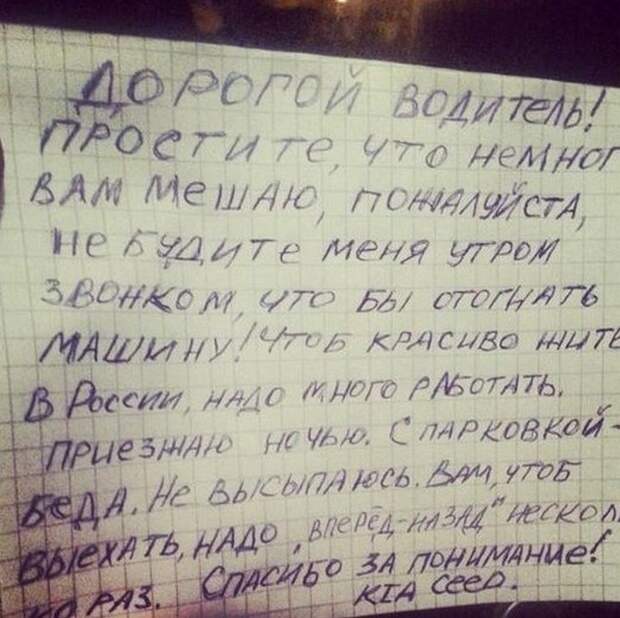 ДОРОГОЙ ВОДИТЕЛЬ!
ПРОСТИТЕ, ЧТО НЕМНОГ
ВАМ МЕШАЮ, ПОЖАЛУЙСТА,
НЕ БУДИТЕ МЕНЯ УТРОМ
ЗВОНКОМ, ЧТО БЫ ОТОГНАТЬ
МАШИНУ! ЧТОБ КРАСИВО ЖИТЬ
В РОССИИ, НАДО МНОГО РАБОТАТЬ.
ПРИЕЗЖАЮ НОЧЬЮ. С ПАРКОВКОЙ-
БЕДА. НЕ ВЫСЫПАЮСЬ. ВАМ, ЧТОБ
ВЫЕХАТЬ, НАДО „ВПЕРЁД-НАЗАД" НЕСКОЛ
КО РАЗ. СПАСИБО ЗА ПОНИМАНИЕ!
KIA CEED.